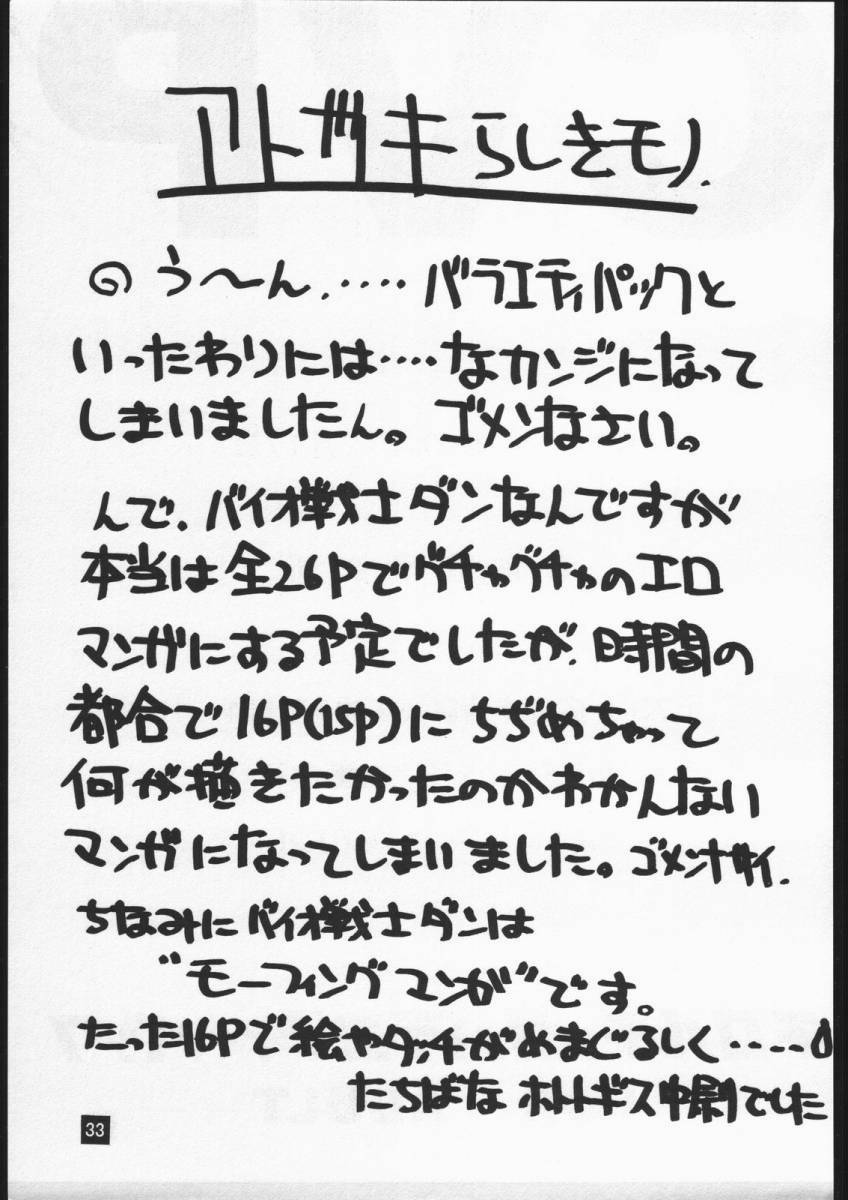 アトガキらしきモノ.
のう〜ん.‥‥バラエティパックと
いったわりには‥‥なカンジになって
しまいましたん。ゴメンなさい。
んで、バイオ戦士ダンなんですが
本当は全26Pでグチャグチャのエロ
マンガにする予定でしたが、時間の
都合で16P(15P)にちぢめちゃって
何が描きたかったのかわかんない
マンガになってしまいました。ゴメンナサイ.
ちなみにバイオ戦士ダンは
“モーフィングマンガ”です。
たった16Pで絵やタッチがめまぐるしく‥‥
たちばな ホトトギス中尉でした
33